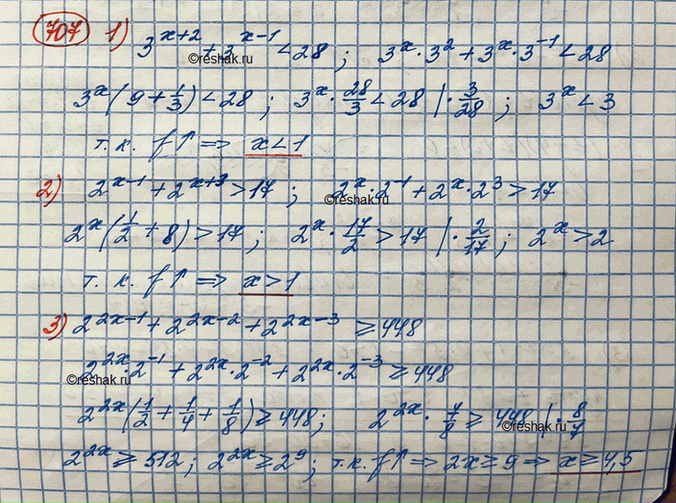 707 1) 3^{x+2} + 3^{x-1} < 28 ; 3^x · 3^2 + 3^x · 3^{-1} < 28
©reshak.ru
3^x (9 + 1/3) < 28 ; 3^x · 28/3 < 28 | · 3/28 ; 3^x < 3
т. к. f↑ ⇒ x < 1
2) 2^{x-1} + 2^{x+3} > 17 ; 2^x · 2^{-1} + 2^x · 2^3 > 17
©reshak.ru
2^x (1/2 + 8) > 17 ; 2^x · 17/2 > 17 | · 2/17 ; 2^x > 2
т. к. f↑ ⇒ x > 1
3) 2^{2x-1} + 2^{2x-2} + 2^{2x-3} ⩾ 448
2^{2x} · 2^{-1} + 2^{2x} · 2^{-2} + 2^{2x} · 2^{-3} ⩾ 448
©reshak.ru
2^{2x} (1/2 + 1/4 + 1/8) ⩾ 448 ; 2^{2x} · 7/8 ⩾ 448 | · 8/7
©reshak.ru
2^{2x} ⩾ 512 ; 2^{2x} ⩾ 2^9 ; т. к. f↑ ⇒ 2x ⩾ 9 ⇒ x ⩾ 4,5